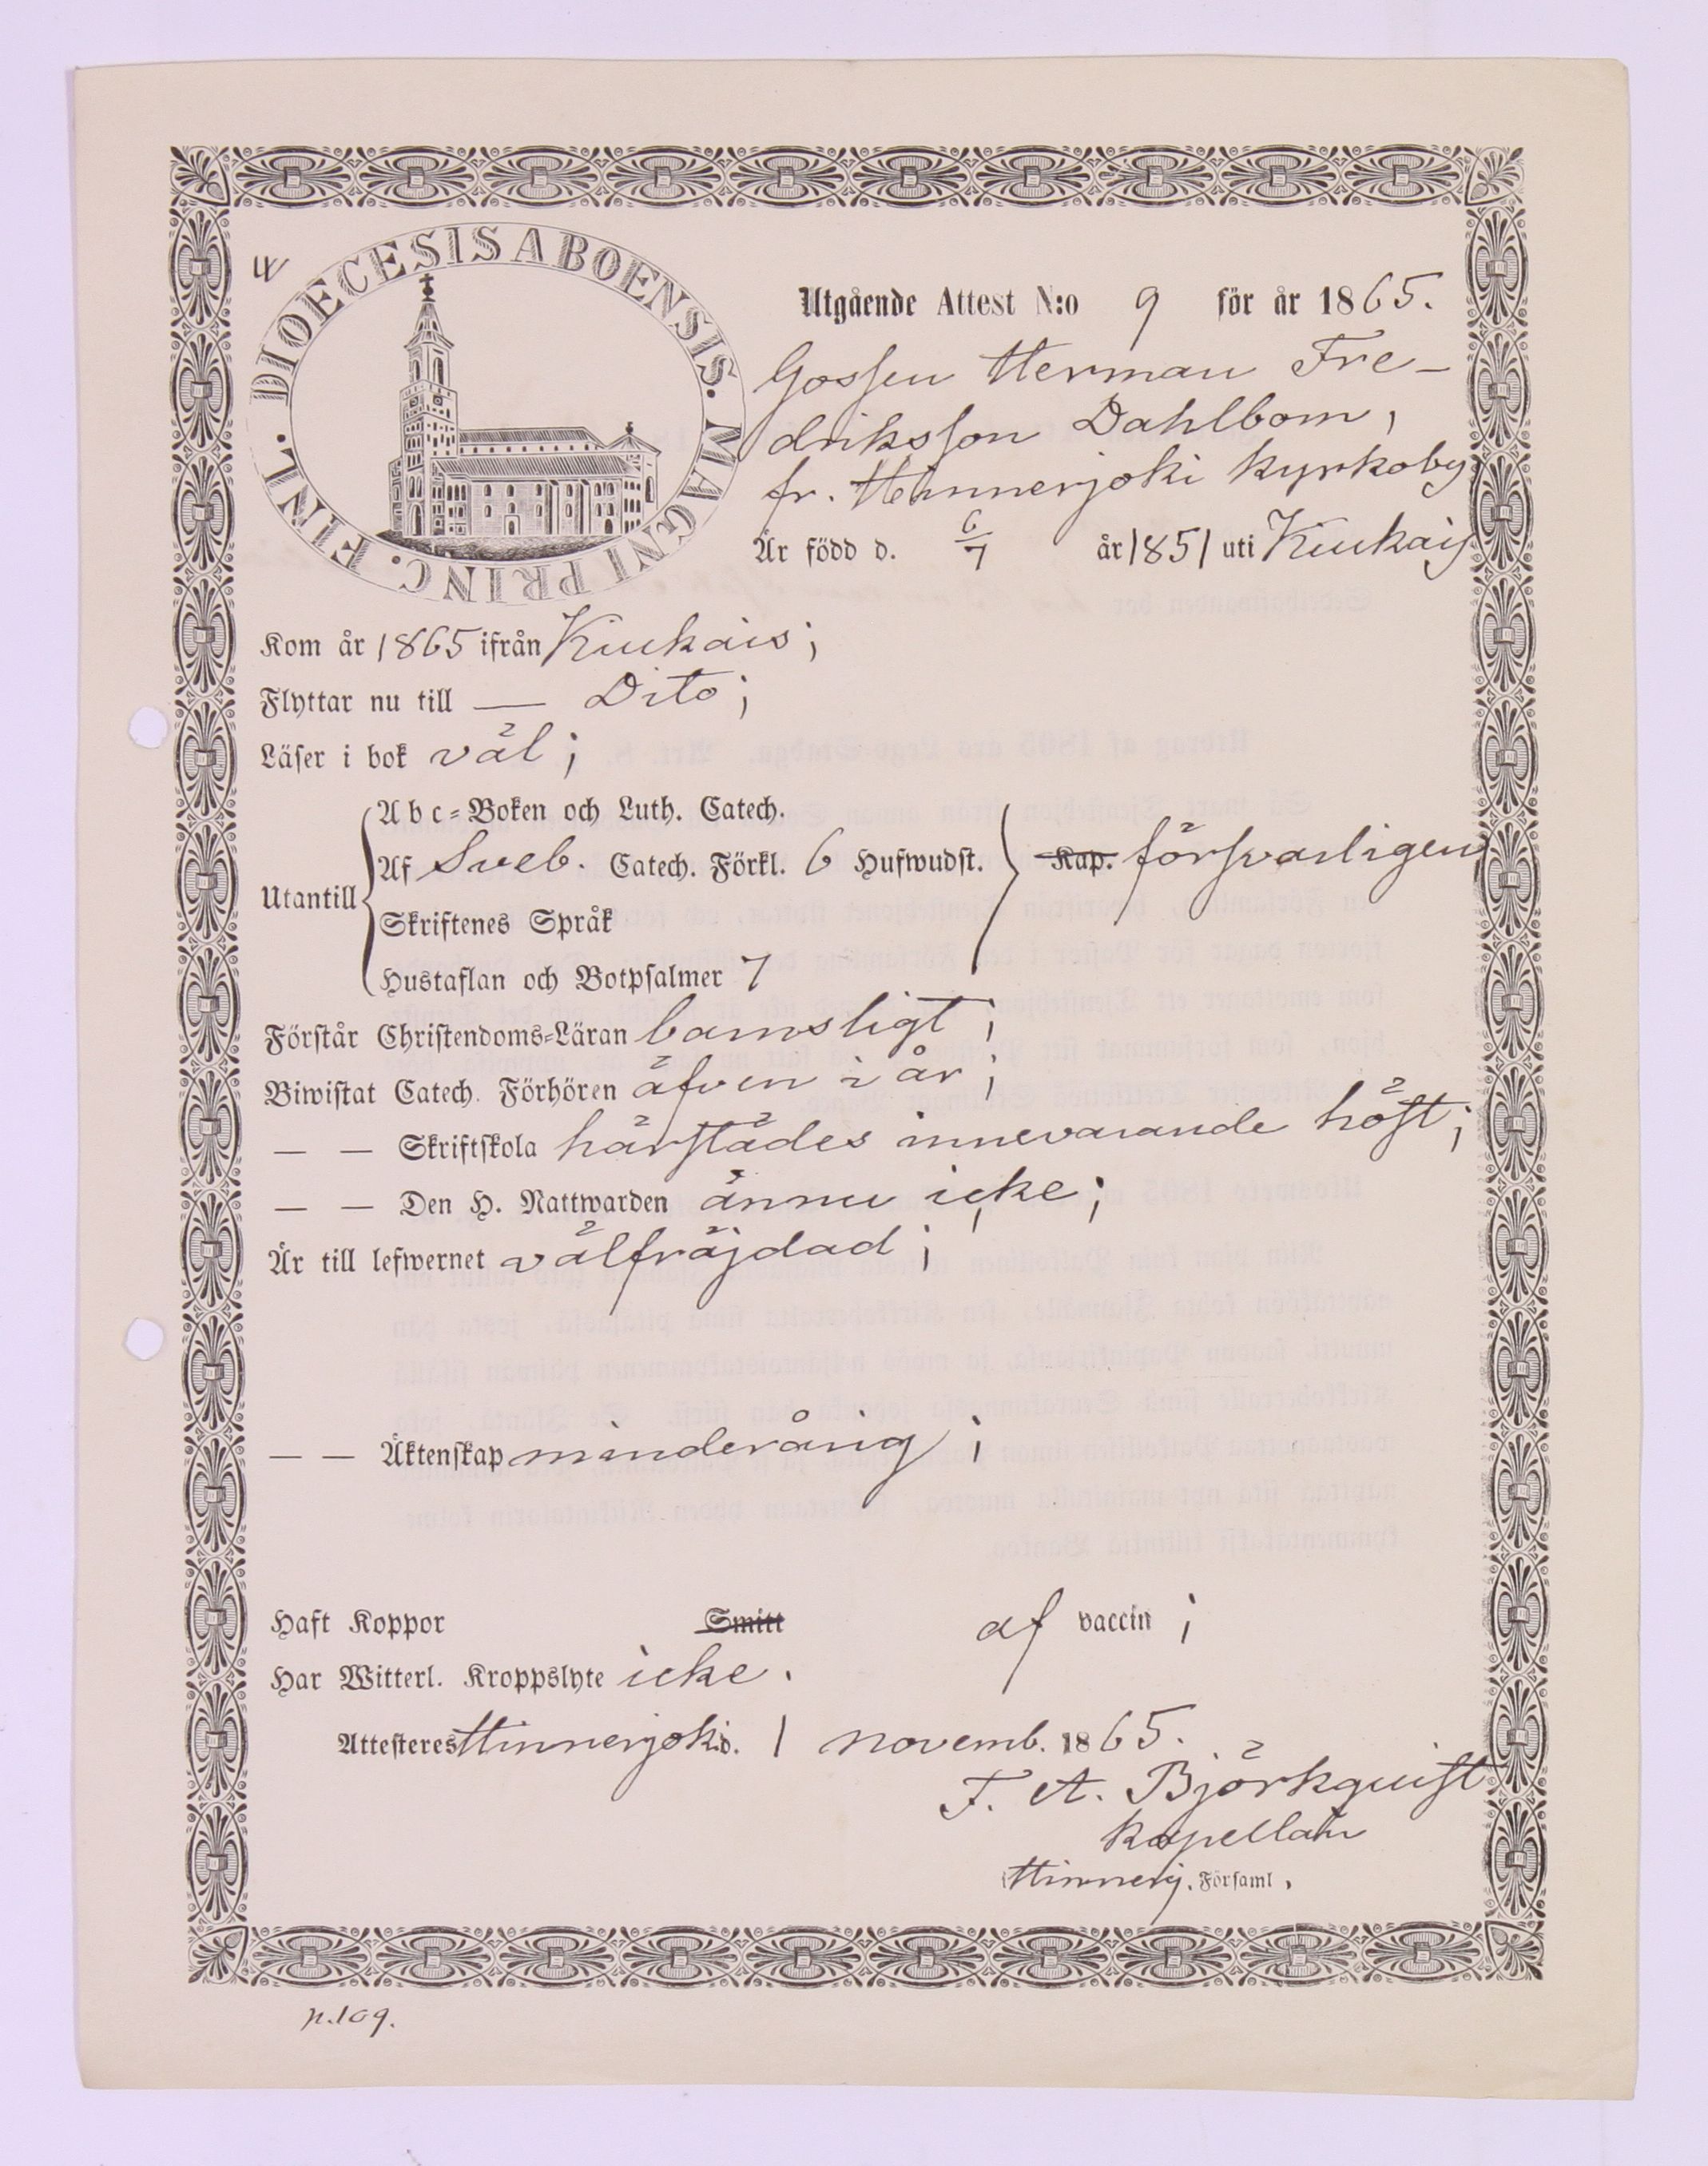 DIOECESIS ABOENSIS. MAGNI PRINC. FINL.
Utgående Attest N:o 9 för år 1865.
Gossen Herman Fre-
driksson Dahlbom,
fr. Hinnerjoki kyrkoby
Är född d. 6/7 år 1851 uti Kiukais
Kom år 1865 ifrån Kiukais;
Flyttar nu till — Dito;
Läser i bok väl;
Utantill
Abc=Boken och Luth. Catech.
Af Sveb. Catech. Förkl. 6 Hufwudst. Kap. försvarligen
Skriftenes Språk
Hustaflan och Botpsalmer 7
Förstår Christendoms=Läran barnsligt;
Biwistat Catech. Förhören äfven i år;
— — Skriftskola härstädes innevarande höst;
— — Den H. Nattwarden ännu icke;
Är till lefwernet välfräjdad;
— — Äktenskap minderårig;
Haft Koppor Smitt af vaccin;
Har Witterl. Kroppslyte icke.
Attesteres Hinnerjoki d. 1 novemb. 1865.
F. A. Björkquist
kapellan
Hinnerj. Församl.
p.109.